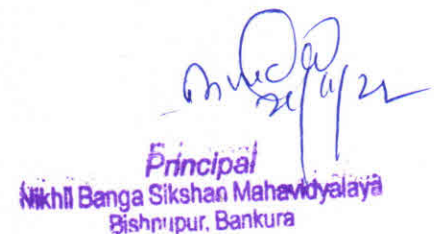 Principal
Nikhil Banga Sikshan Mahavidyalaya
Bishnupur, Bankura